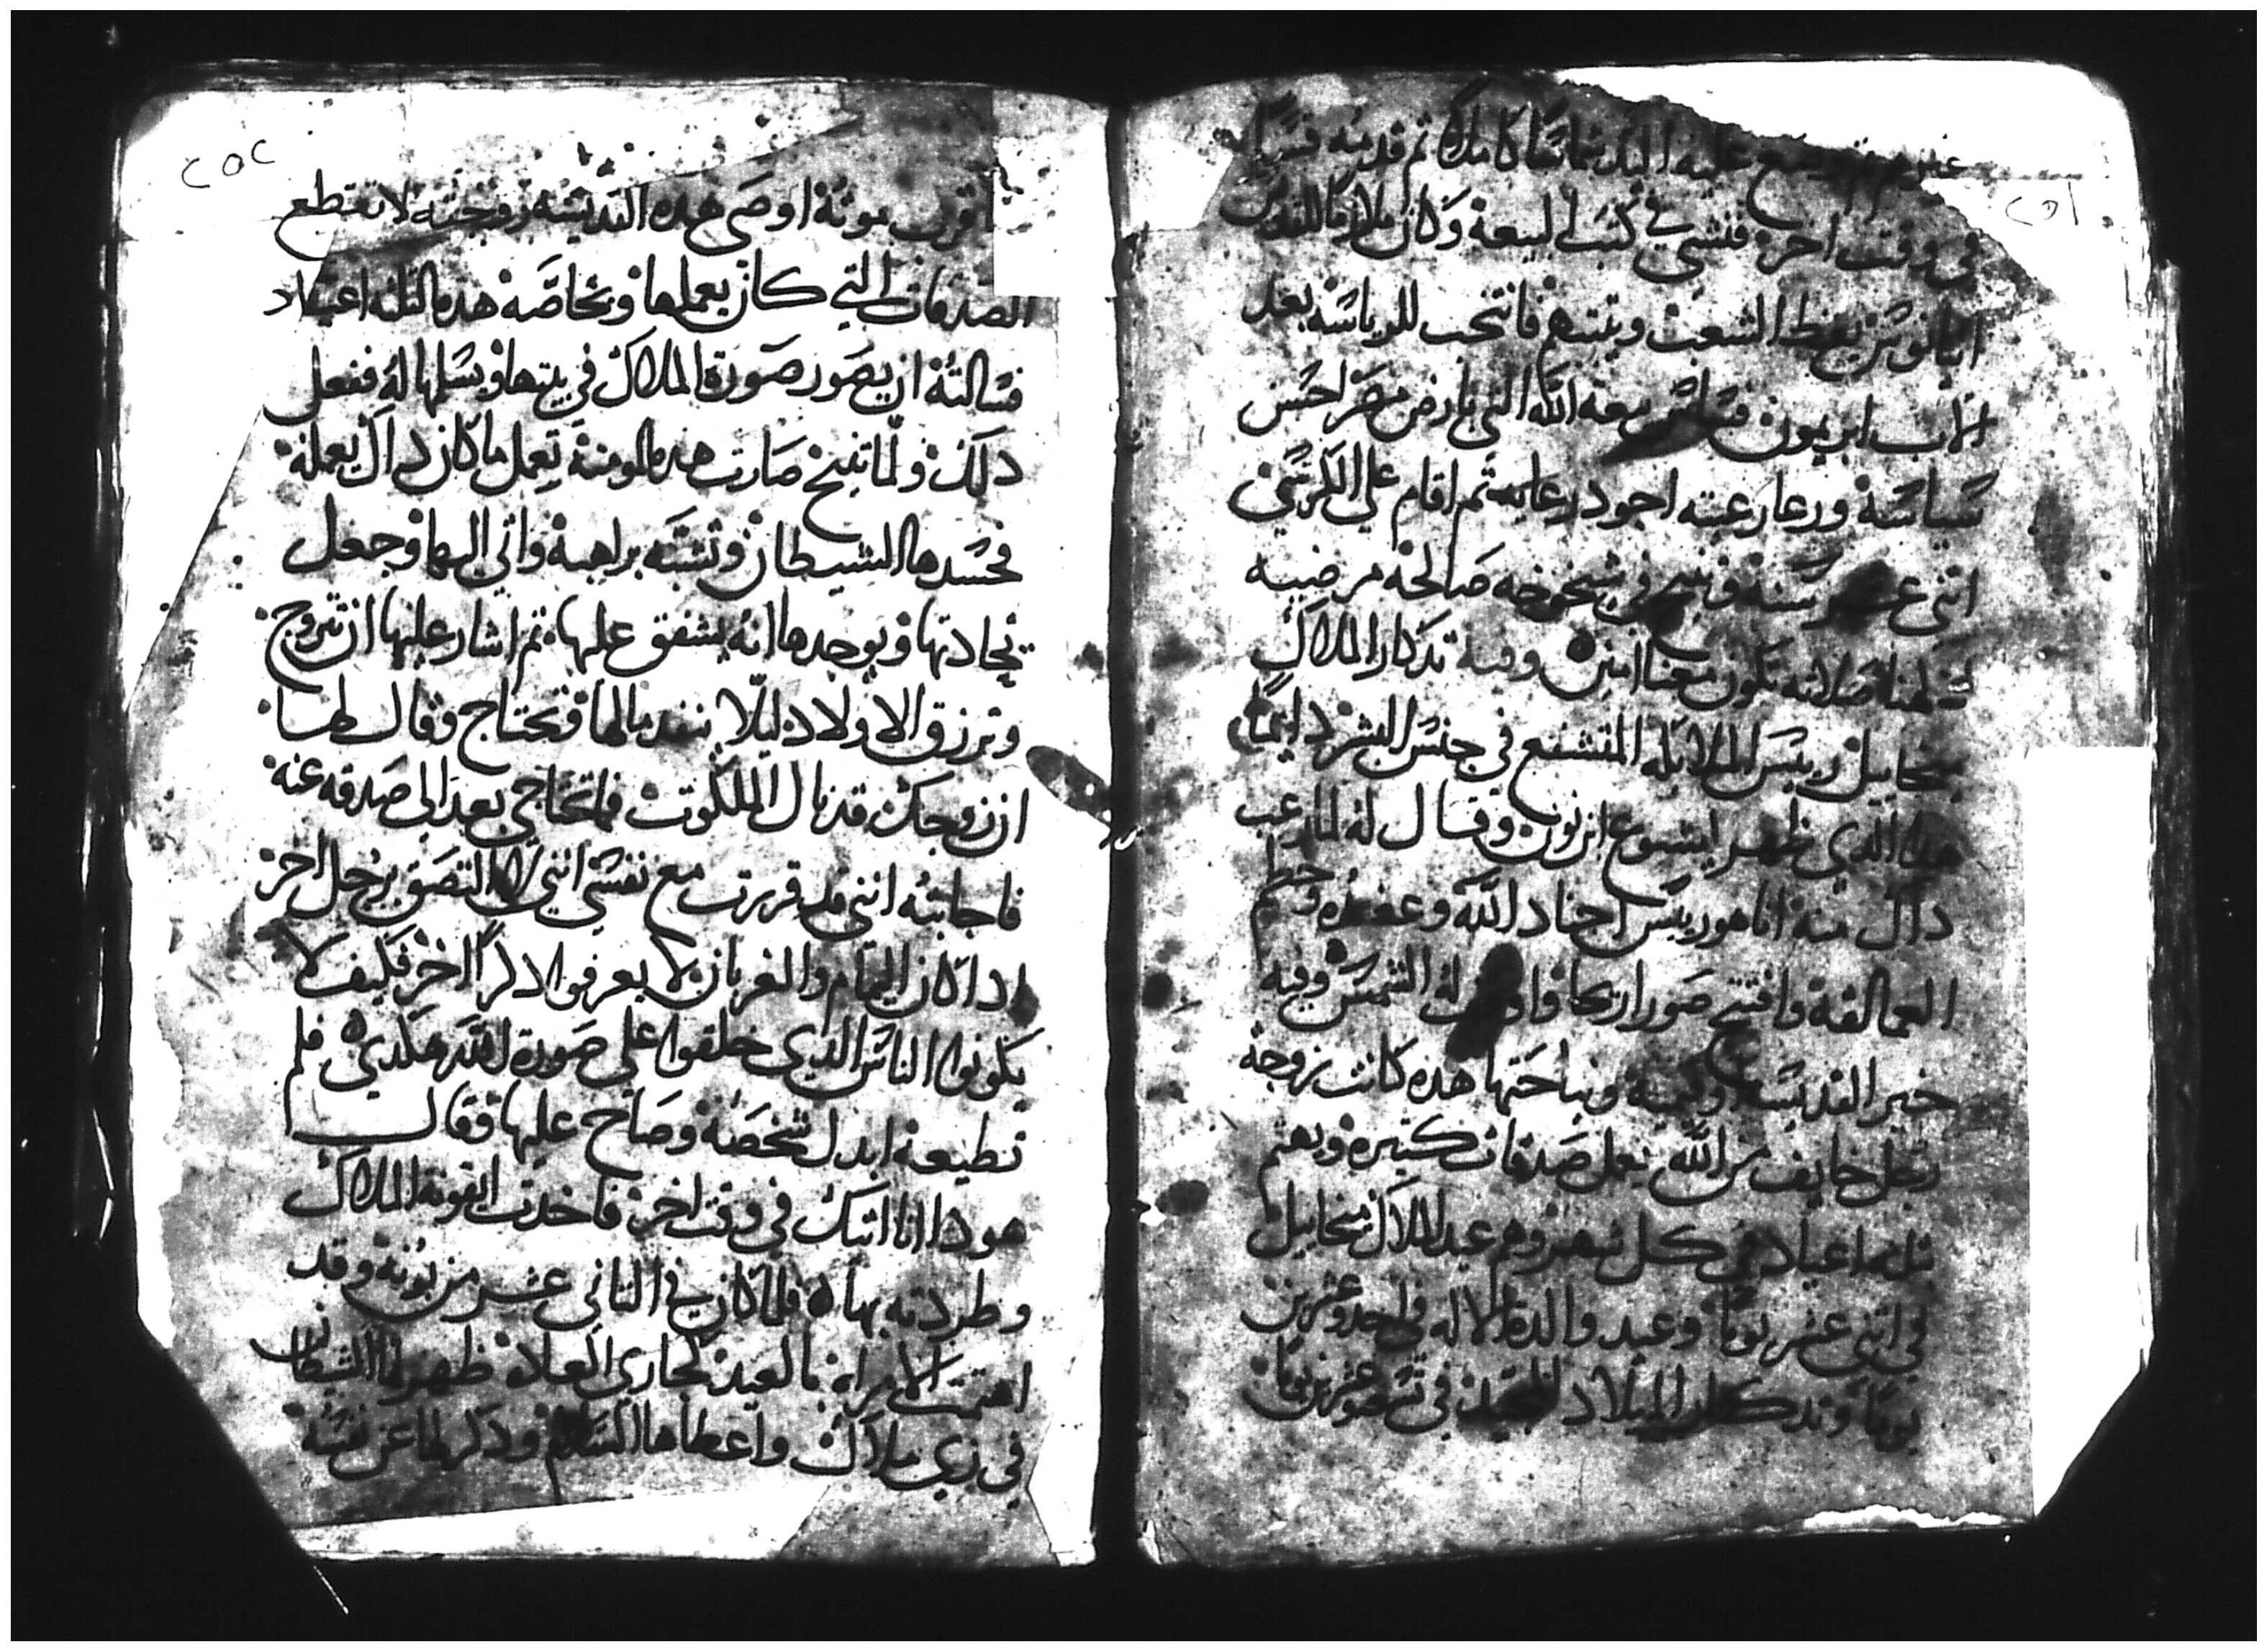 ٢٥١
عليه شماسًا كاملاً ثم قدمه قسًا
في وقت اخر ففتش في كتب البيعة وكان ملازمًا للقديس
يعظ الشعب وينبههم فانتخب للرياسة بعد
الاب ابريمون الله التي بارض مصر احسن
سياسة ورعا رعيته اجود رعايه ثم اقام على الكرسي
اثني عشر سنة وتنيح في شيخوخه صالحة مرضيه
صلاته تكون معنا امين وفيه تدكار الملاك
ميخاييل رييس الملايكه المتشفع في جنس البشر دايمًا
هدا الدي ظهر ليشوع ابن نون وقال له لما رعب
داك منه انا هو رييس اجناد الله وعضده وحطم
العمالقة وافتتح صور اريحا له الشمس وفيه
خبر القديسة ونياحتها هده كانت زوجة
رجل خايف من الله يعمل صدقات كتيره ويهتم
بثلثه اعياد في كل شهر وهم عيد الملاك ميخاييل
في اثني عشر يومًا وعيد والدة الاله في احد وعشرين
يومًا وتدكار الميلاد المجيد في تسعه وعشرين يومًا
٢٥٢
قرب موته اوصى هده القديسه زوجته لا تقطع
الصدقات التي كان يعملها وبخاصه هده التلته اعياد
فسالته ان يصور صورة الملاك في بيتها ويسلمها له ففعل
دلك ولما تنيح صارت هده المومنة تعمل ما كان داك يعمله
فحسدها الشيطان وتشبه براهبة واتي اليها وجعل
يحادتها ويوجدها انه يشفق عليها ثم اشار عليها ان تتزوج
وترزق الاولاد ليلا ينفد مالها وتحتاج وقال لها
ان زوجك قد نال الملكوت فما تحتاجي بعد الى صدقه عنه
فاجابته انني قد قررت مع نفسي انني لا التصق برجل اخر
ادا كان اليمام والغربان لا يعرفوا دكرًا اخر فكيف لا
يكونوا الناس الدي خلقوا على صورة الله هكدي فلم
تطيعه ابدل شخصه وصاح عليها وقال
هودا انا اتيك في وقت اخر فاخدت ايقونة الملاك
وطردته بها فلما كان في الثاني عشر من بونة وقد
اهتمت الامراه بالعيد كجاري العادة ظهر لها الشيطان
في زي ملاك واعطاها السلام ودكر لها عن نفسه